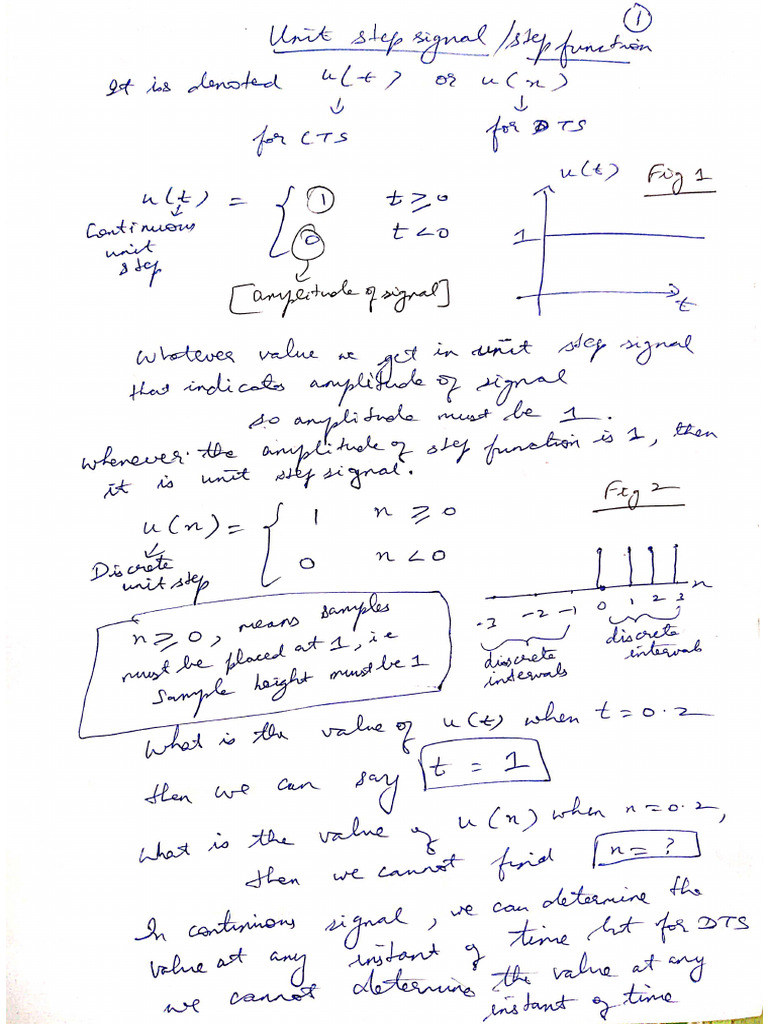 ①
Unit step signal / step function
It is denoted u(t) or u(n)
↓ ↓
for CTS for DTS
u(t) = { 1 t ≥ 0
0 t < 0
↓
Continuous
unit
step
↓
[amplitude of signal]
u(t) Fig 1
1
t
Whatever value we get in unit step signal
that indicates amplitude of signal
so amplitude must be 1.
whenever the amplitude of step function is 1, then
it is unit step signal.
u(n) = { 1 n ≥ 0
0 n < 0
↓
Discrete
unit step
Fig 2
n
-3 -2 -1 0 1 2 3
discrete
intervals
discrete
interval
n ≥ 0, means samples
must be placed at 1, i.e
sample height must be 1
What is the value of u(t) when t = 0.2
then we can say t = 1
What is the value of u(n) when n = 0.2,
then we cannot find n = ?
In continuous signal, we can determine the
value at any instant of time but for DTS
we cannot determine the value at any
instant of time